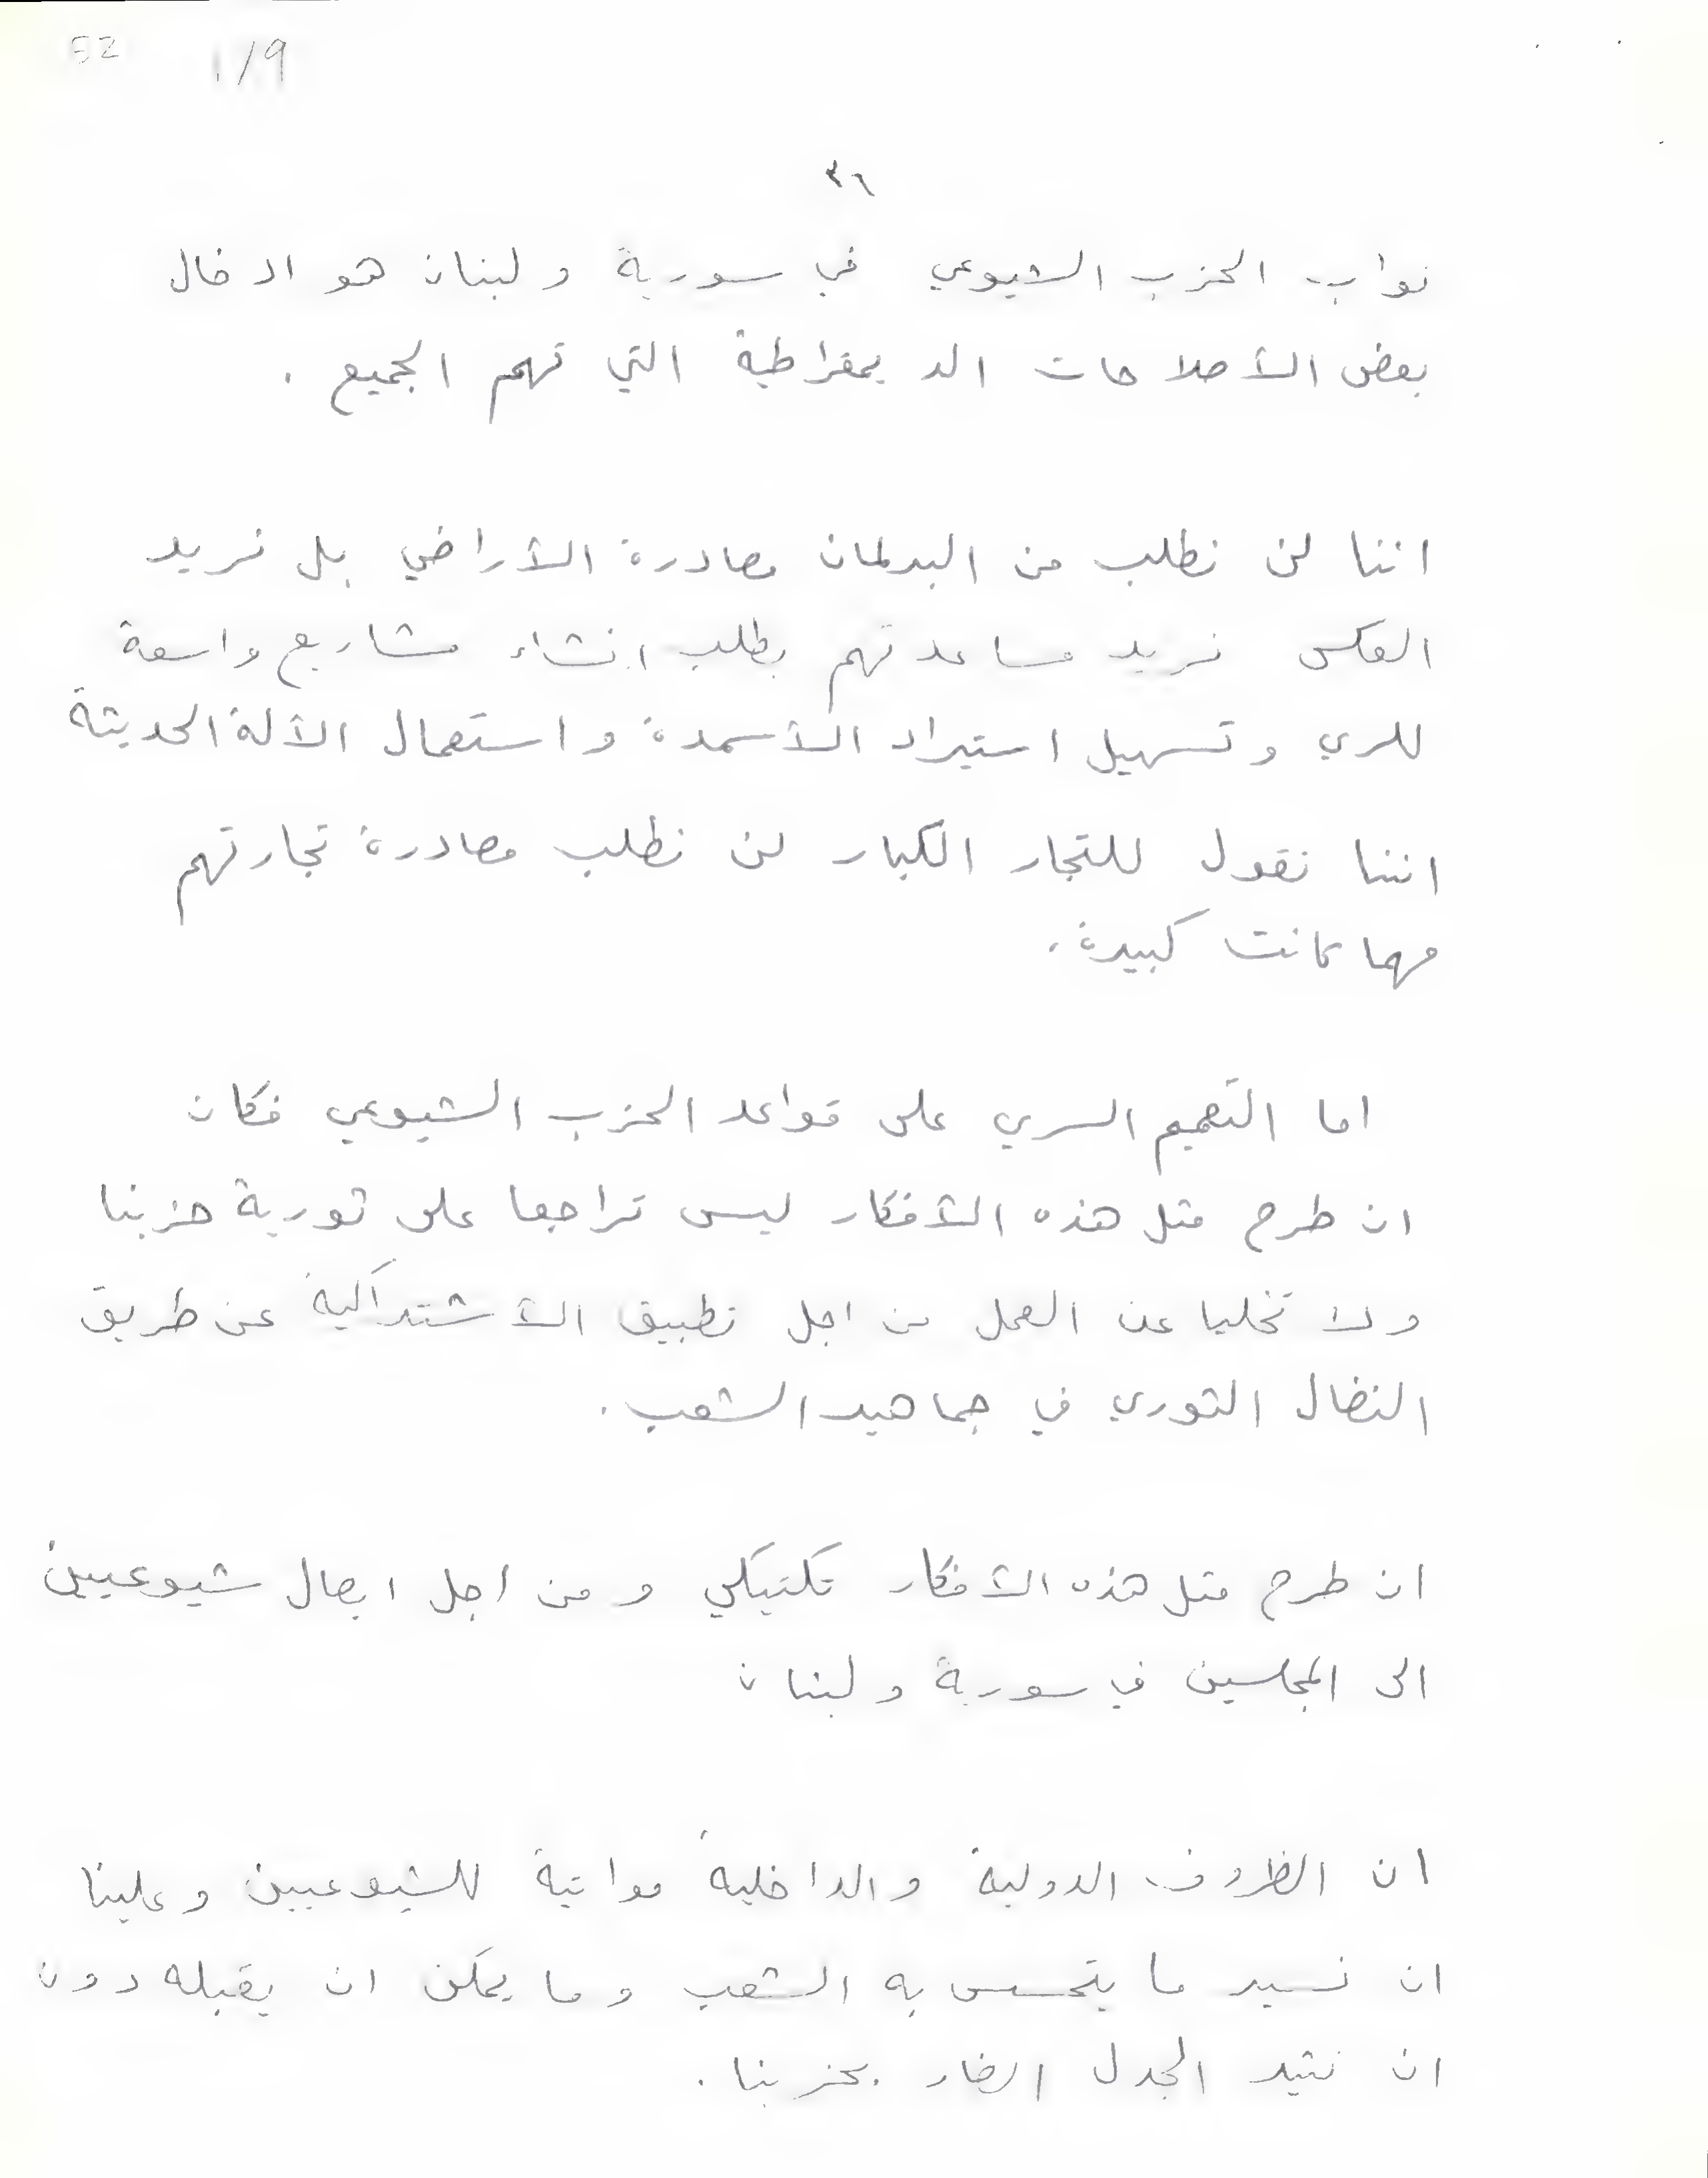 52 1/9
٣٦
نواب الحزب الشيوعي في سورية ولبنان هو ادخال
بعض الأصلاحات الديمقراطية التي تهم الجميع .
اننا لن نطلب من البرلمان مصادرة الأراضي بل نريد
العكس نريد مساعدتهم بطلب انشاء مشاريع واسعة
للري وتسهيل استيراد الأسمدة واستعمال الألة الحديثة
اننا نقول للتجار الكبار لن نطلب مصادرة تجارتهم
مهما كانت كبيرة .
اما التعميم السري على قواعد الحزب الشيوعي فكان
ان طرح مثل هذه الأفكار ليس تراجعا على ثورية حزبنا
ولا تخليا عن العمل من اجل تطبيق الأشتراكية عن طريق
النضال الثوري في جماهير الشعب .
ان طرح مثل هذه الأفكار تكتيكي ومن اجل ايصال شيوعيين
الى المجلسين في سورية ولبنان
ان الظروف الدولية والداخلية مواتية للشيوعيين وعلينا
ان نسير ما يتحسس به الشعب وما يمكن ان يقبله دون
ان نثير الجدل الضار بحزبنا .